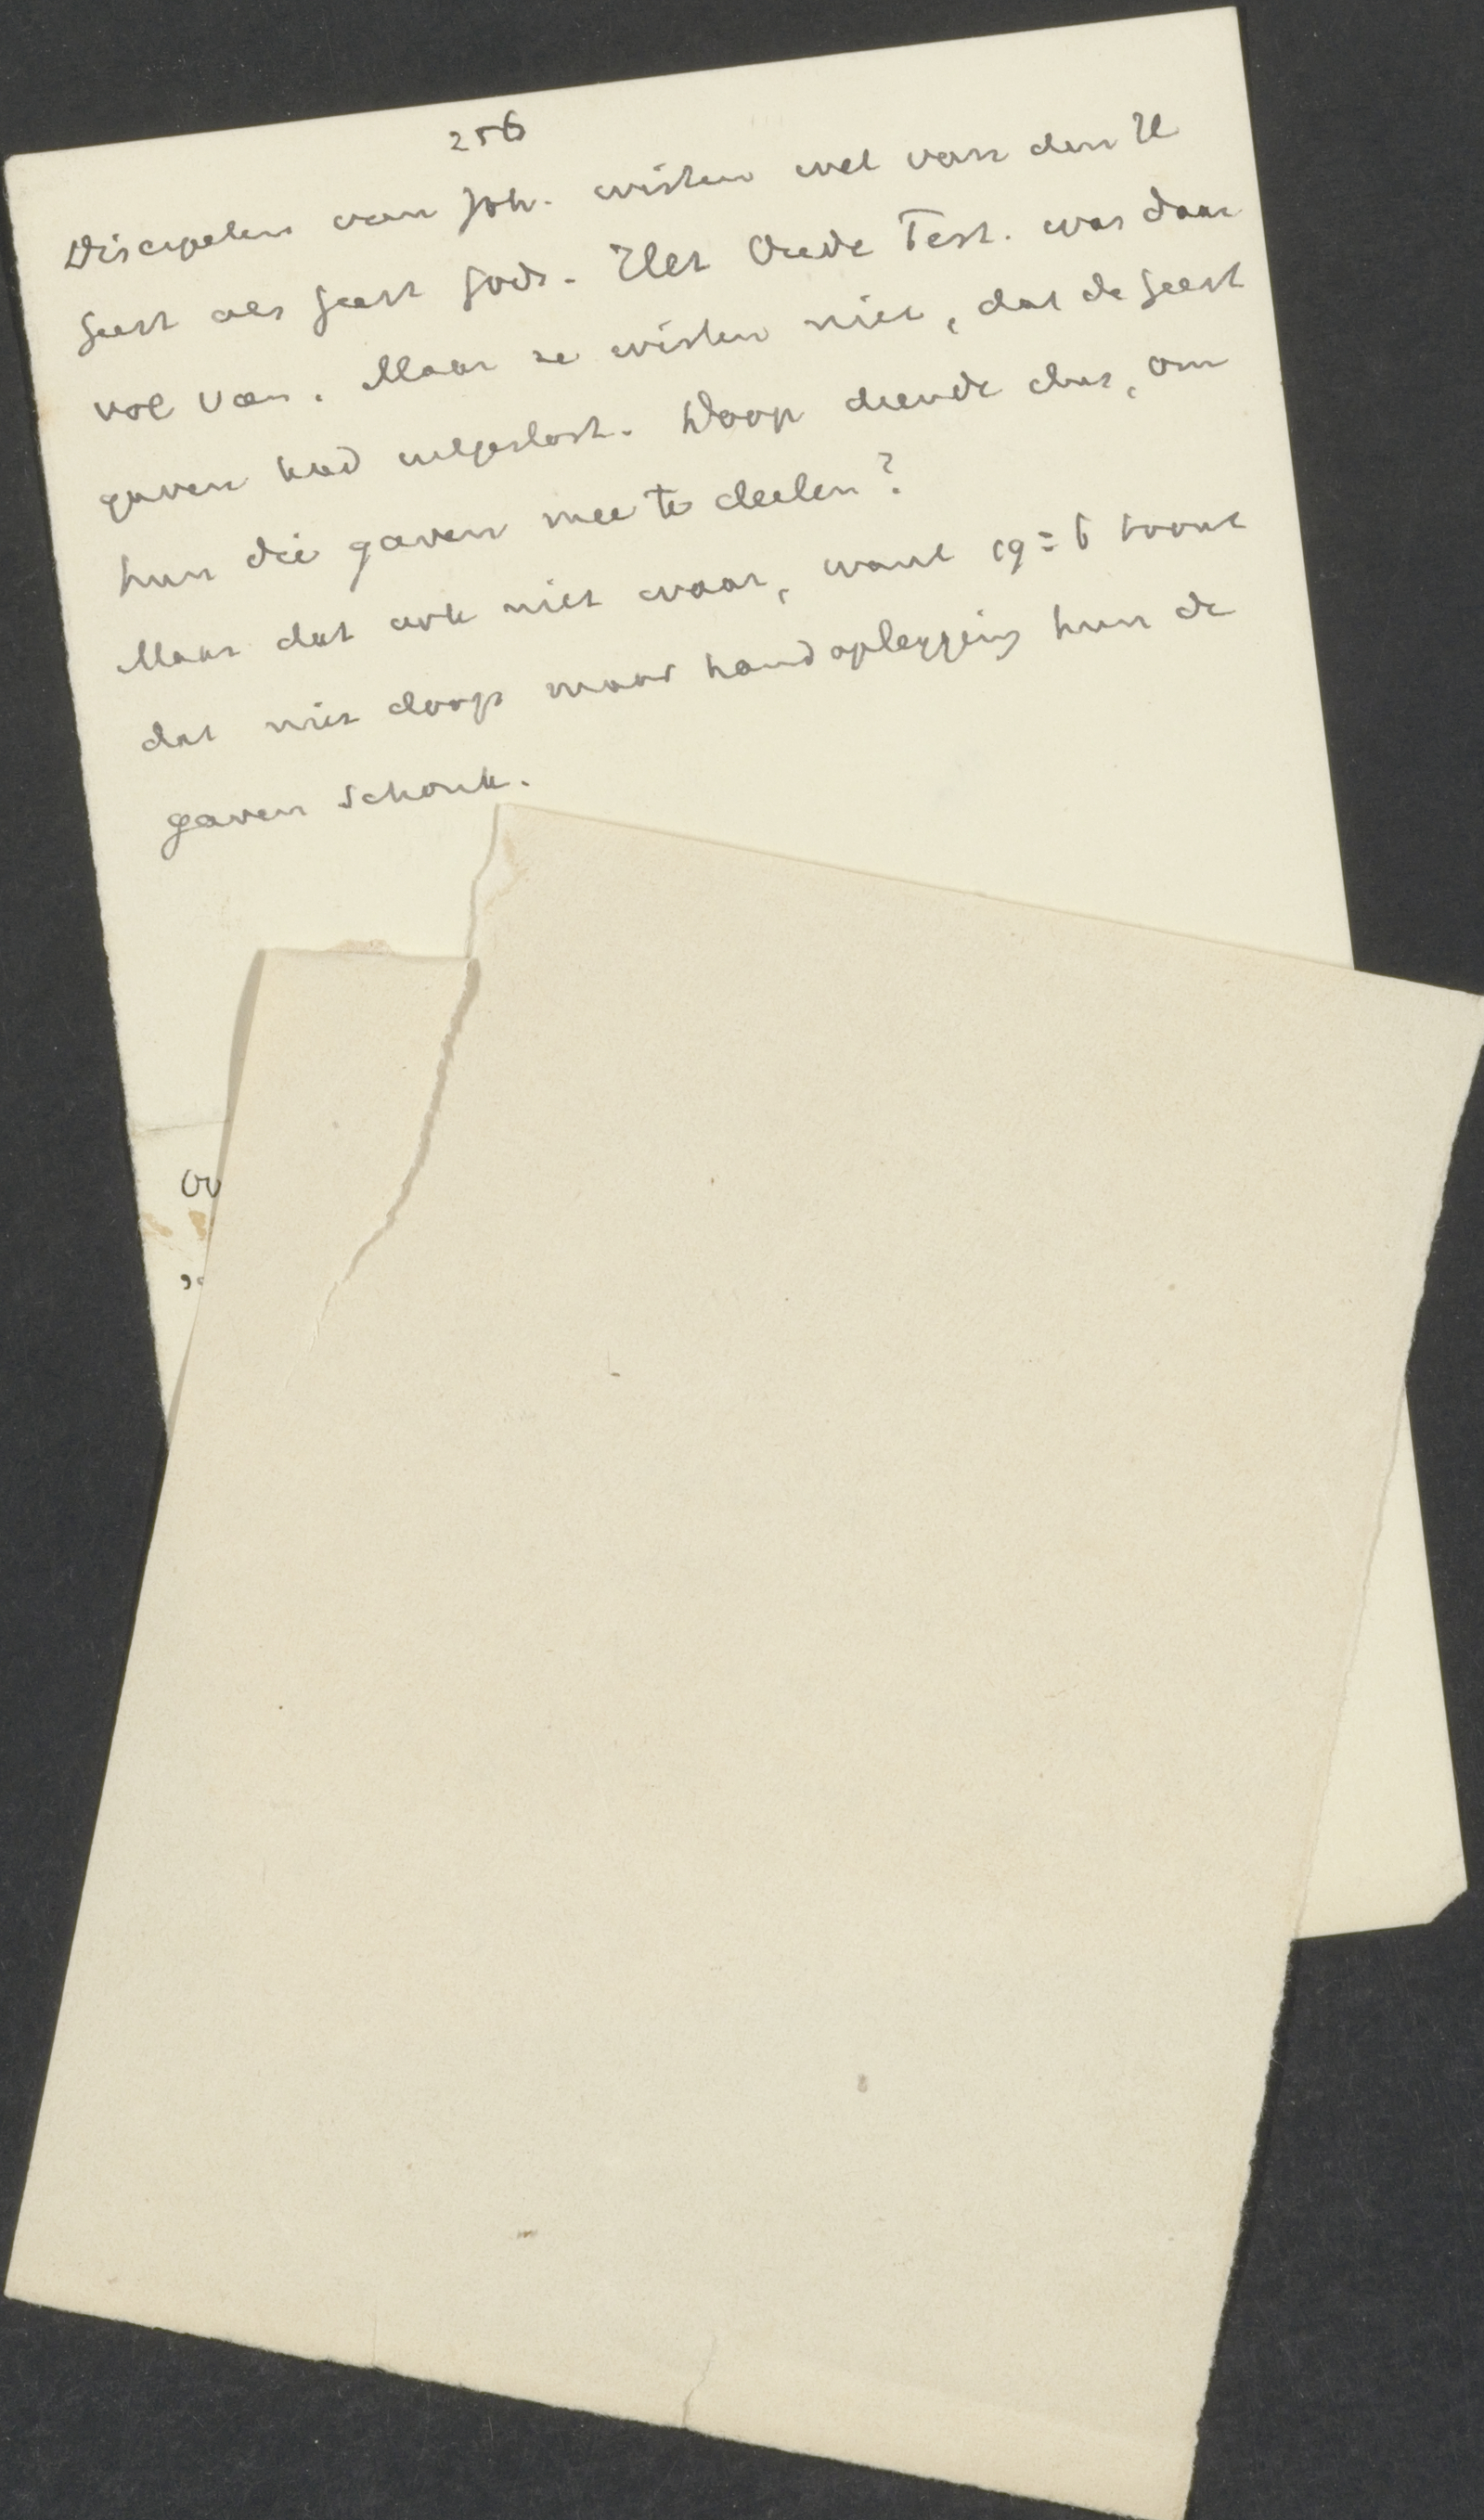 256
Discipelen van Joh. wisten wel van den H
Geest als Geest Gods. Het Oude Test. was daar
vol van. Maar ze wisten niet, dat de Geest
gaven had uitgestort. Doop diende dus, om
hun die gaven mee te deelen?
Maar dat ook niet waar, want 19:6 toont
dat niet doop maar handoplegging hun de
gaven schonk.